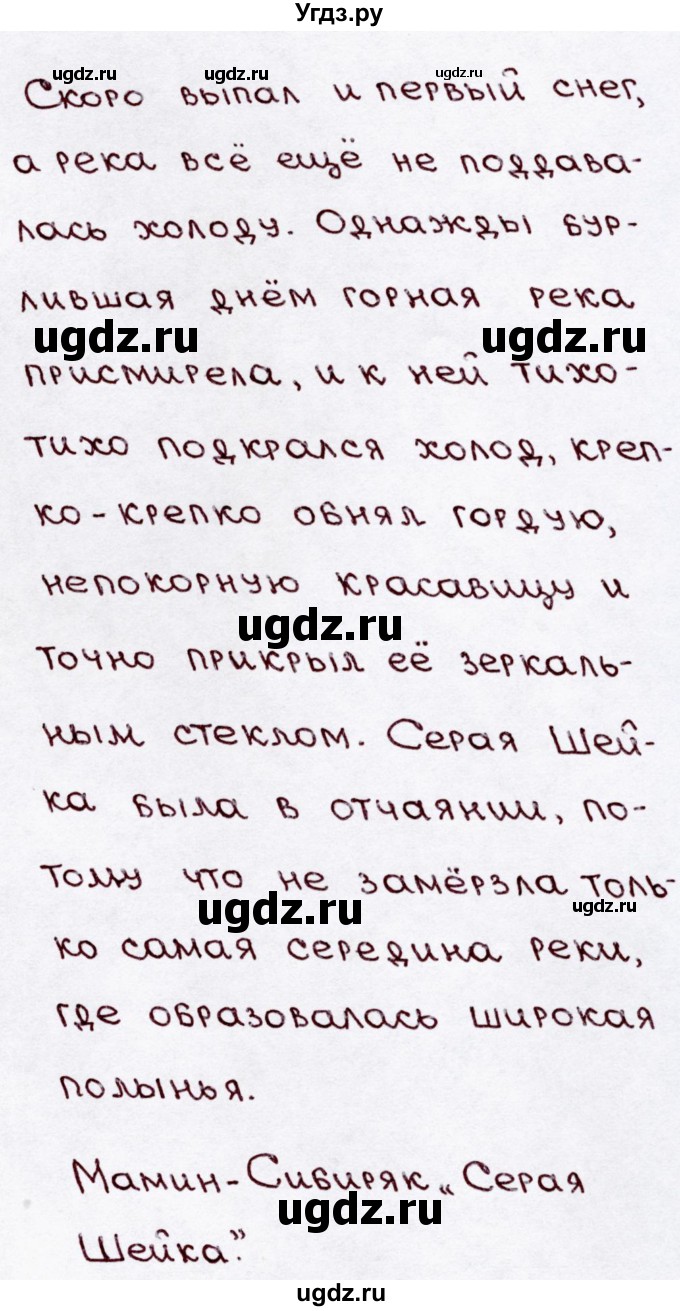 Угдз.ру
ugdz.ru ugdz.ru ugdz.ru
Скоро выпал и первый снег,
а река всё ещё не поддава-
лась холоду. Однажды бур-
лившая днём горная река
ugdz.ru ugdz.ru
присмирела, и к ней тихо-
тихо подкрался холод, креп-
ко-крепко обнял гордую,
непокорную красавицу и
ugdz.ru
точно прикрыл её зеркаль-
ным стеклом. Серая Шей-
ка была в отчаянии, по-
тому что не замёрзла толь-
ugdz.ru ugdz.ru
ко самая середина реки,
где образовалась широкая
полынья.
Мамин-Сибиряк „Серая
ugdz.ru
Шейка".
ugdz.ru